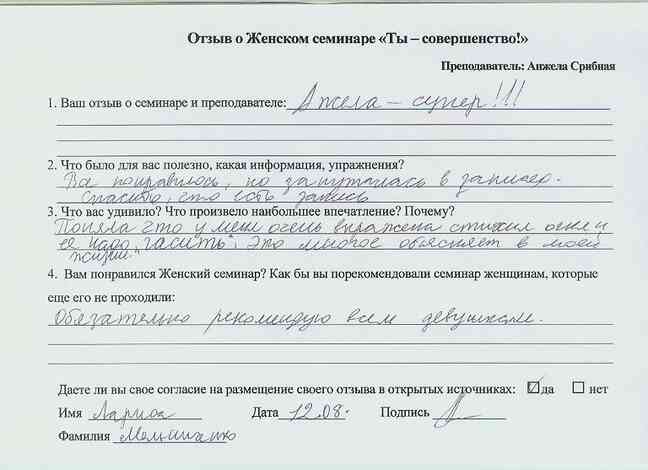 Отзыв о Женском семинаре «Ты – совершенство!»
Преподаватель: Анжела Срибная
1. Ваш отзыв о семинаре и преподавателе: Анжела – супер!!!
2. Что было для вас полезно, какая информация, упражнения?
Все понравилось, но запуталась в записях.
Спасибо, что есть запись
3. Что вас удивило? Что произвело наибольшее впечатление? Почему?
Поняла что у меня очень выражена стихия огня и
ее надо "гасить". Это многое объясняет в моей
жизни.
4. Вам понравился Женский семинар? Как бы вы порекомендовали семинар женщинам, которые
еще его не проходили:
Обязательно рекомендую всем девушкам.
Даете ли вы свое согласие на размещение своего отзыва в открытых источниках: да нет
Имя Лариса Дата 12.08. Подпись
Фамилия